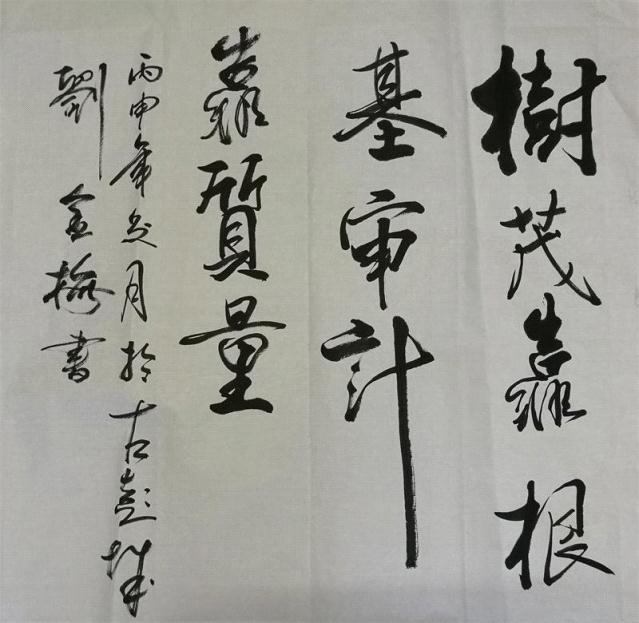 樹茂靠根
基审計
靠質量
丙申年月於古彭城
劉金梅書